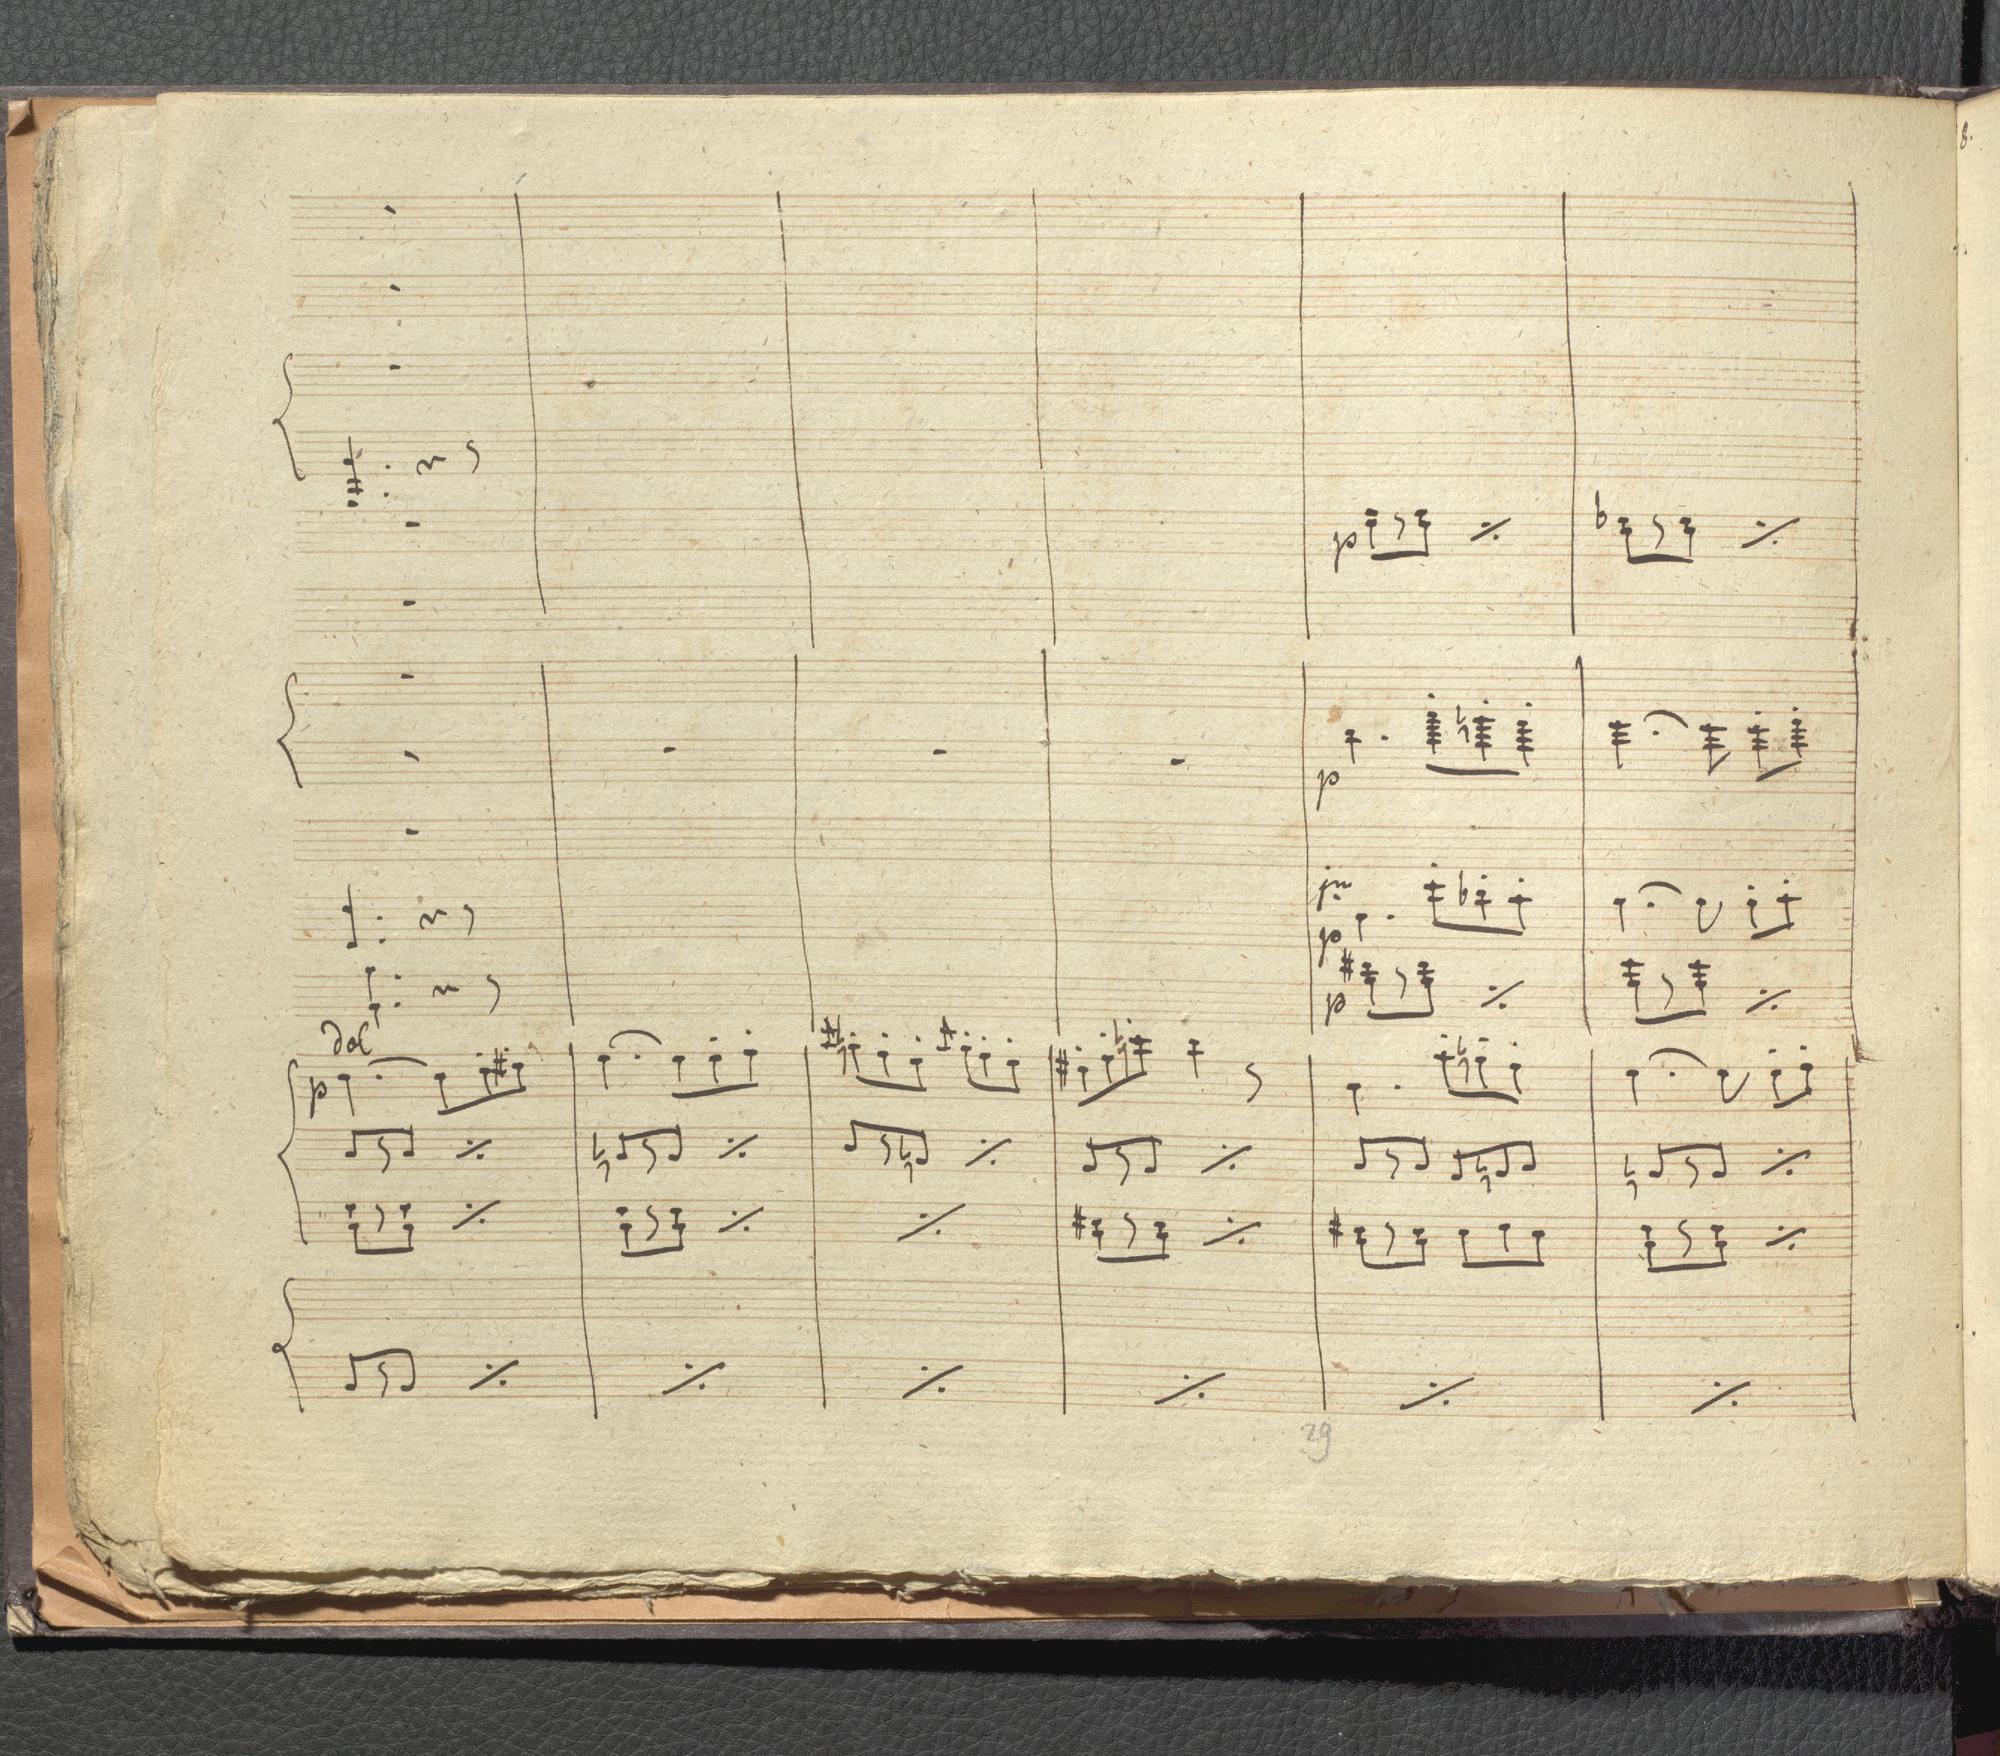 8.
p
b
p
p
p
dol
p
29